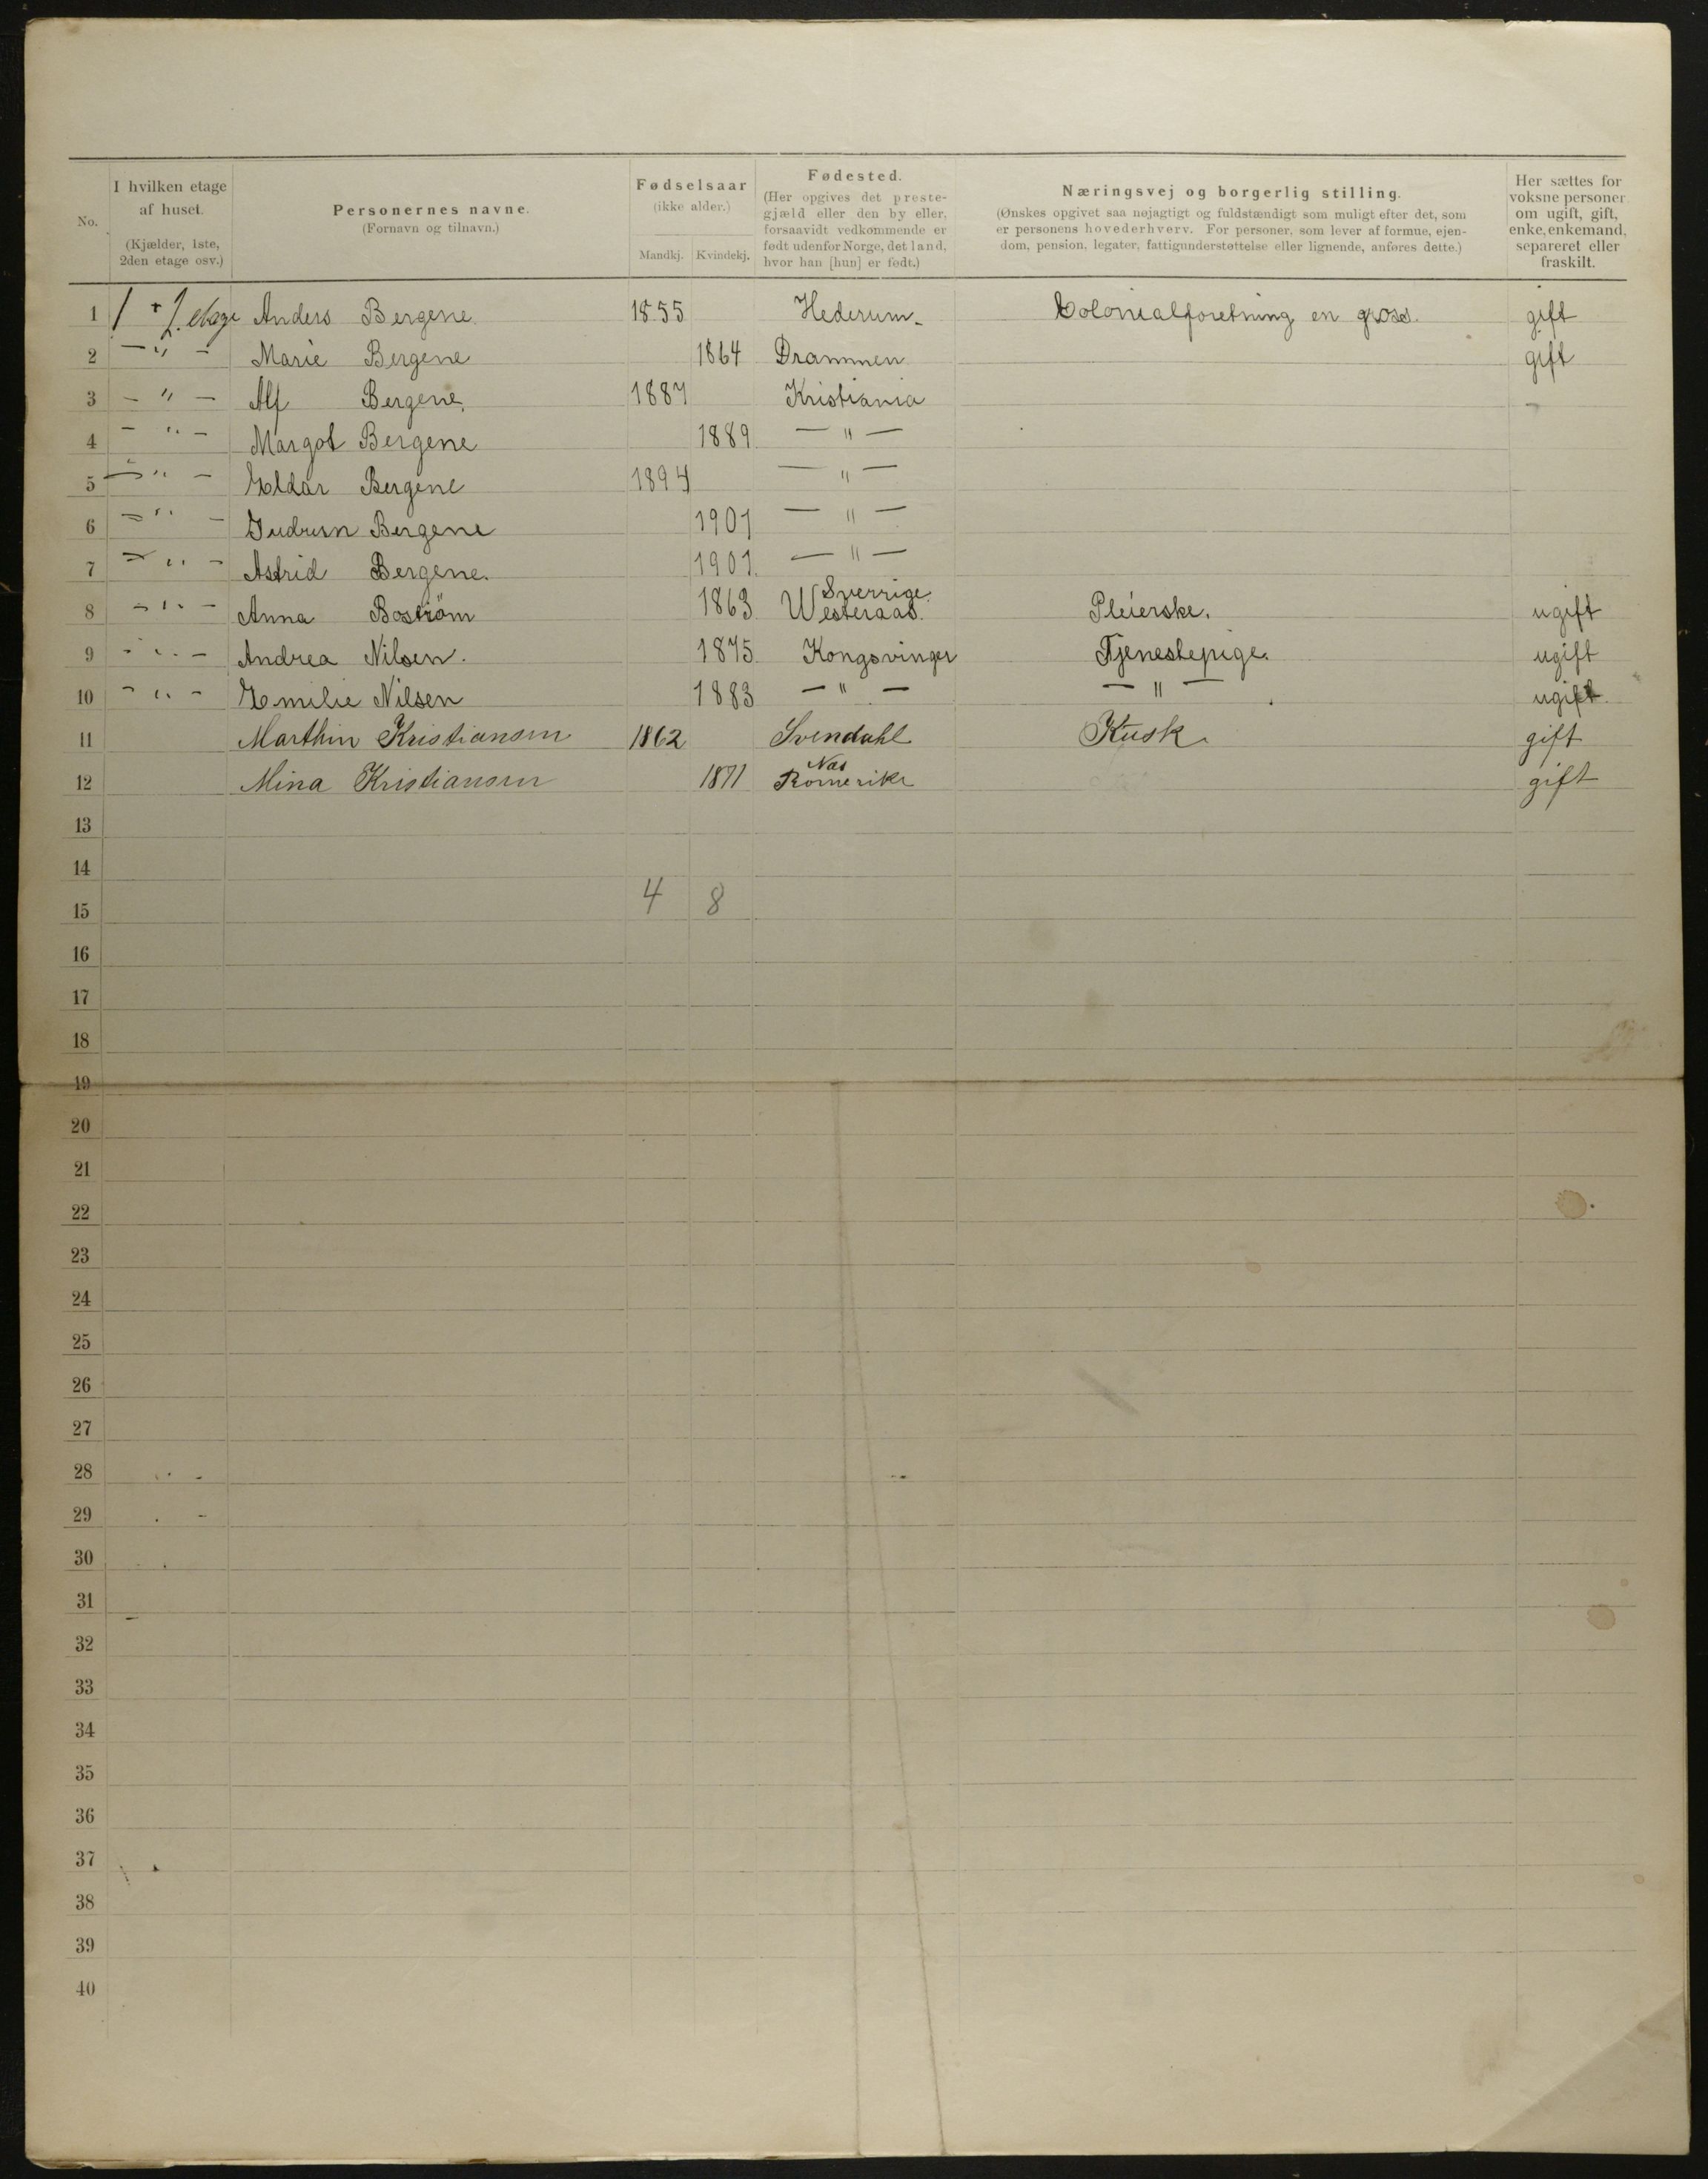 No.
I hvilken etage af huset.
(Kjælder, 1ste, 2den etage osv.)
Personernes navne.
(Fornavn og tilnavn.)
Fødselsaar
(ikke alder.)
Mandkj. Kvindekj.
Fødested.
(Her opgives det preste-
gjæld eller den by eller,
forsaavidt vedkommende er
født udenfor Norge, det land,
hvor han [hun] er født.)
Næringsvej og borgerlig stilling.
(Ønskes opgivet saa nøjagtigt og fuldstændigt som muligt efter det, som
er personens hovederhverv. For personer, som lever af formue, ejen-
dom, pension, legater, fattigunderstøttelse eller lignende, anføres dette.)
Her sættes for
voksne personer
om ugift, gift,
enke, enkemand,
separeret eller
fraskilt.
1 1 + 2. etage Anders Bergene 1855 Hederum. Colonialforetning en gross. gift
2 — " — Marie Bergene 1864 Drammen gift
3 — " — Alf Bergene. 1887 Kristiania
4 — " — Margot Bergene 1889 — " —
5 — " — Eldar Bergene 1894 — " —
6 — " — Gudrun Bergene 1901 — " —
7 — " — Astrid Bergene. 1901. — " —
8 — " — Anna Boström 1863 Sverrige. Westeraas. Pleierske. ugift
9 — " — Andrea Nilsen. 1875. Kongsvinger Tjenestepige. ugift
10 — " — Emilie Nilsen 1883 — " — — " — ugift.
11 Marthin Kristiansen 1862 Svendahl Kusk gift
12 Mina Kristiansen 1871 Nas Romerike gift
13
14
15 4 8
16
17
18
19
20
21
22
23
24
25
26
27
28
29
30
31
32
33
34
35
36
37
38
39
40